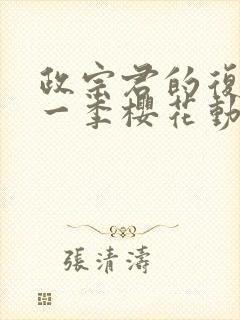 政宗君的復
一季櫻花動
張清濤